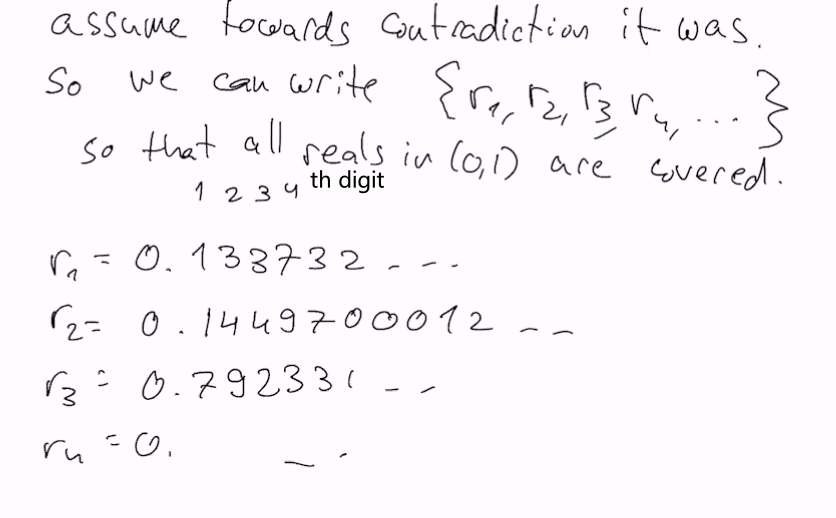 assume towards contradiction it was.
So we can write {r1, r2, r3 r4, ... }
so that all reals in (0,1) are covered.
1 2 3 4 th digit
r1 = 0. 133732 - - -
r2= 0.1449700012 - -
r3 = 0.792331 - -
r4 = 0. - -